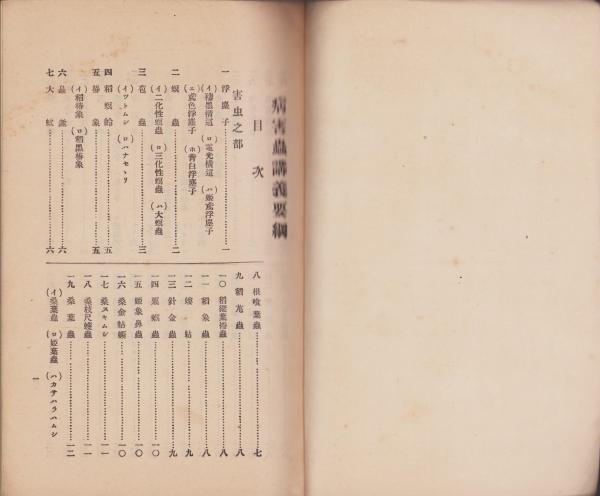 病害蟲講義要綱
目次
害虫之部
一 浮塵子……一
(イ)褄黑横這 (ロ)電光横這 (ハ)姬鳶浮塵子
(ニ)鳶色浮塵子 (ホ)背白浮塵子
二 螟蟲……二
(イ)二化性螟蟲 (ロ)三化性螟蟲 (ハ)大螟蟲
三 苞蟲……三
(イ)ツトムシ (ロ)ハナセヽリ
四 稻螟蛉……五
五 椿象……五
(イ)稻椿象 (ロ)稻黑椿象
六 𧒂螽……六
七 大蚊……六
八 根喰葉蟲……七
九 稻泥蟲……八
一〇 稻縱葉捲蟲……八
一一 稻象蟲……八
一二 螻蛄……九
一三 針金蟲……九
一四 螟蟲……一〇
一五 姬象鼻蟲……一〇
一六 桑金龜子……一〇
一七 桑スキムシ……一一
一八 桑枝尺蠖蟲……一一
一九 桑葉蟲……一二
(イ)桑葉蟲 (ロ)姬葉蟲 (ハ)カサハラハムシ
一